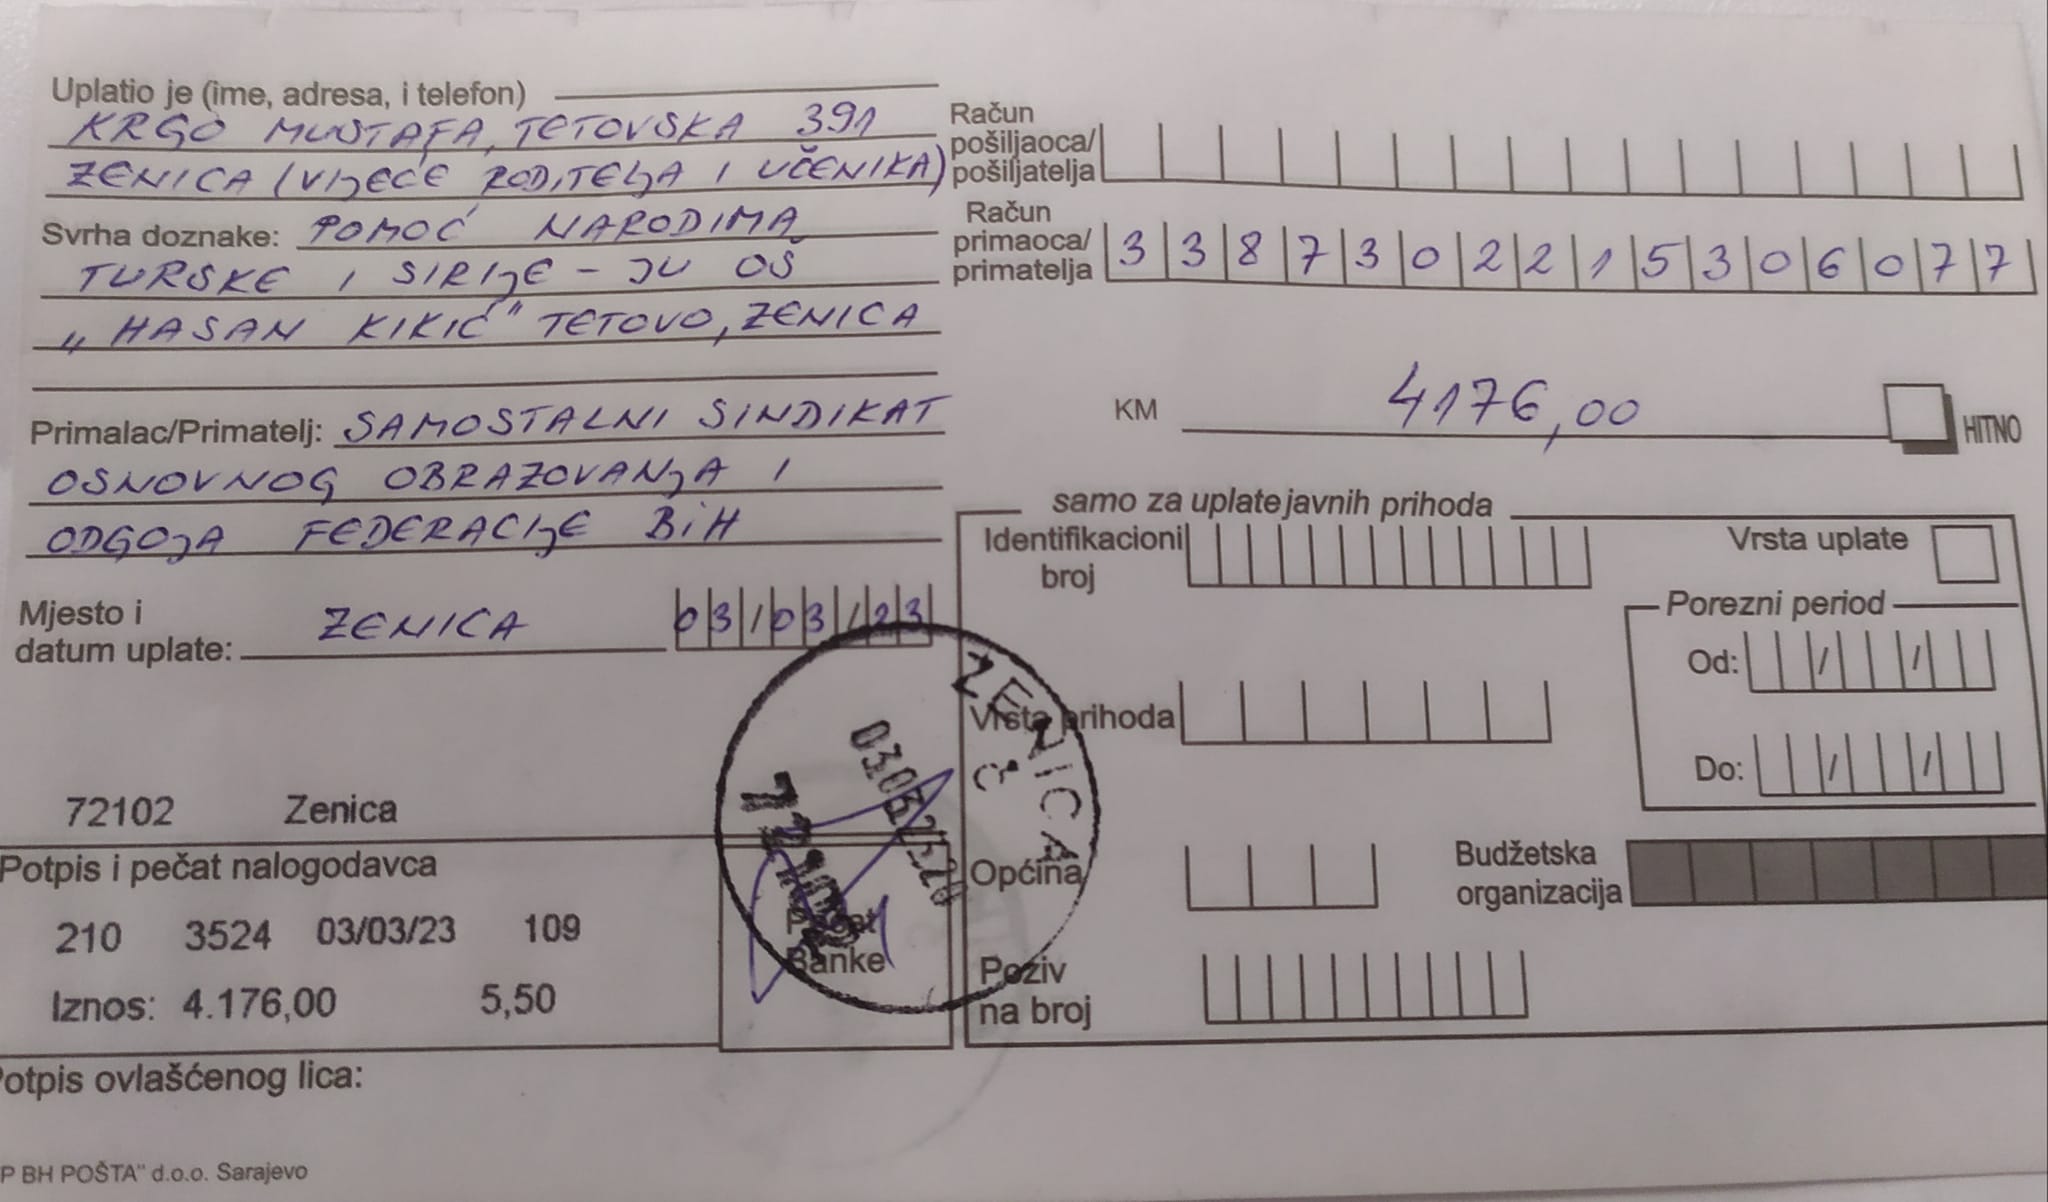 Uplatio je (ime, adresa, i telefon)
KRGO MUSTAFA, TETOVSKA 391
ZENICA (VIJEĆE RODITELJA I UČENIKA)
Svrha doznake: POMOĆ NARODIMA
TURSKE I SIRIJE - JU OŠ
„HASAN KIKIĆ" TETOVO, ZENICA
Primalac/Primatelj: SAMOSTALNI SINDIKAT
OSNOVNOG OBRAZOVANJA I
ODGOJA FEDERACIJE BiH
Mjesto i
datum uplate: ZENICA 03/03/23
72102 Zenica
Potpis i pečat nalogodavca
210 3524 03/03/23 109
Iznos: 4.176,00 5,50
Pečat
Banke
Potpis ovlašćenog lica:
P BH POŠTA" d.o.o. Sarajevo
Račun
pošiljaoca/
pošiljatelja
Račun
primaoca/
primatelja 3387302215306077
KM 4176,00 HITNO
samo za uplate javnih prihoda
Identifikacioni
broj
Vrsta uplate
Porezni period
Od: / /
Do: / /
Vrsta prihoda
Općina
Budžetska
organizacija
Poziv
na broj
ZENICA